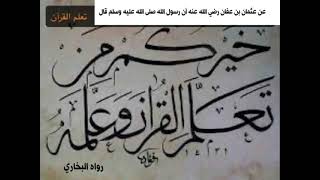 تعلم القرآن
عن عثمان بن عفان رضي الله عنه أن رسول الله صلى الله عليه وسلم قال
خيركم من
تعلم القرآن وعلمه
١٤٣١
رواه البخاري